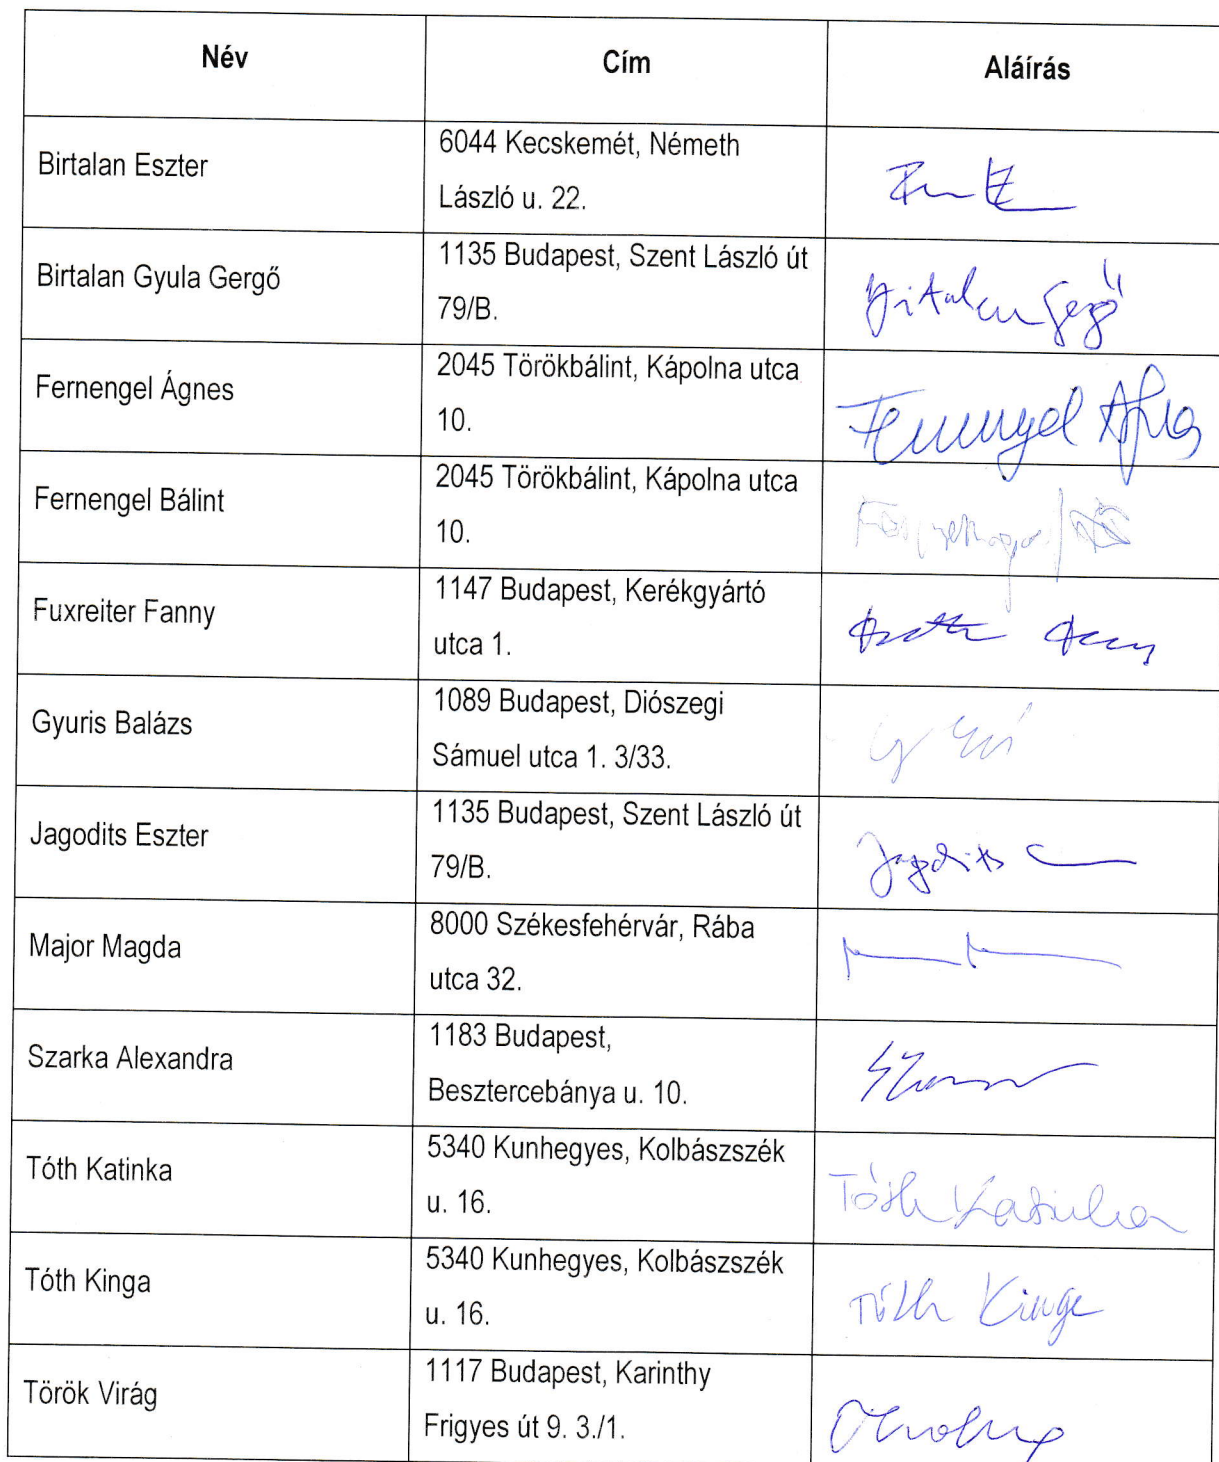 Név Cím Aláírás
Birtalan Eszter
6044 Kecskemét, Németh
László u. 22.
Birtalan Gyula Gergő
1135 Budapest, Szent László út
79/B.
Birtalan Gergő
Fernengel Ágnes
2045 Törökbálint, Kápolna utca
10.
Fernengel Ágnes
Fernengel Bálint
2045 Törökbálint, Kápolna utca
10.
Fuxreiter Fanny
1147 Budapest, Kerékgyártó
utca 1.
Gyuris Balázs
1089 Budapest, Diószegi
Sámuel utca 1. 3/33.
Jagodits Eszter
1135 Budapest, Szent László út
79/B.
Jagodits
Major Magda
8000 Székesfehérvár, Rába
utca 32.
Szarka Alexandra
1183 Budapest,
Besztercebánya u. 10.
Tóth Katinka
5340 Kunhegyes, Kolbászszék
u. 16.
Tóth Katinka
Tóth Kinga
5340 Kunhegyes, Kolbászszék
u. 16.
Tóth Kinga
Török Virág
1117 Budapest, Karinthy
Frigyes út 9. 3./1.